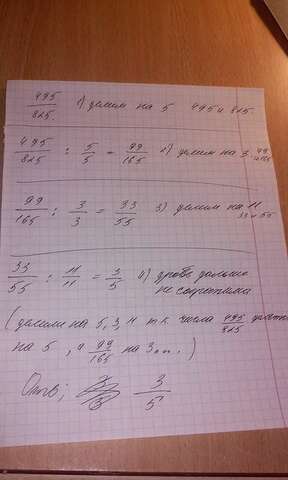 495/825 1) делим на 5 495 и 825.
495/825 : 5/5 = 99/165 2) делим на 3 99 и 165
99/165 : 3/3 = 33/55 3) делим на 11 33 и 55
33/55 : 11/11 = 3/5 4) дробь дальше
не сократима
(делим на 5, 3, 11 т.к числа 495/825 кратны
на 5, а 99/165 на 3...)
Отв; 3/5